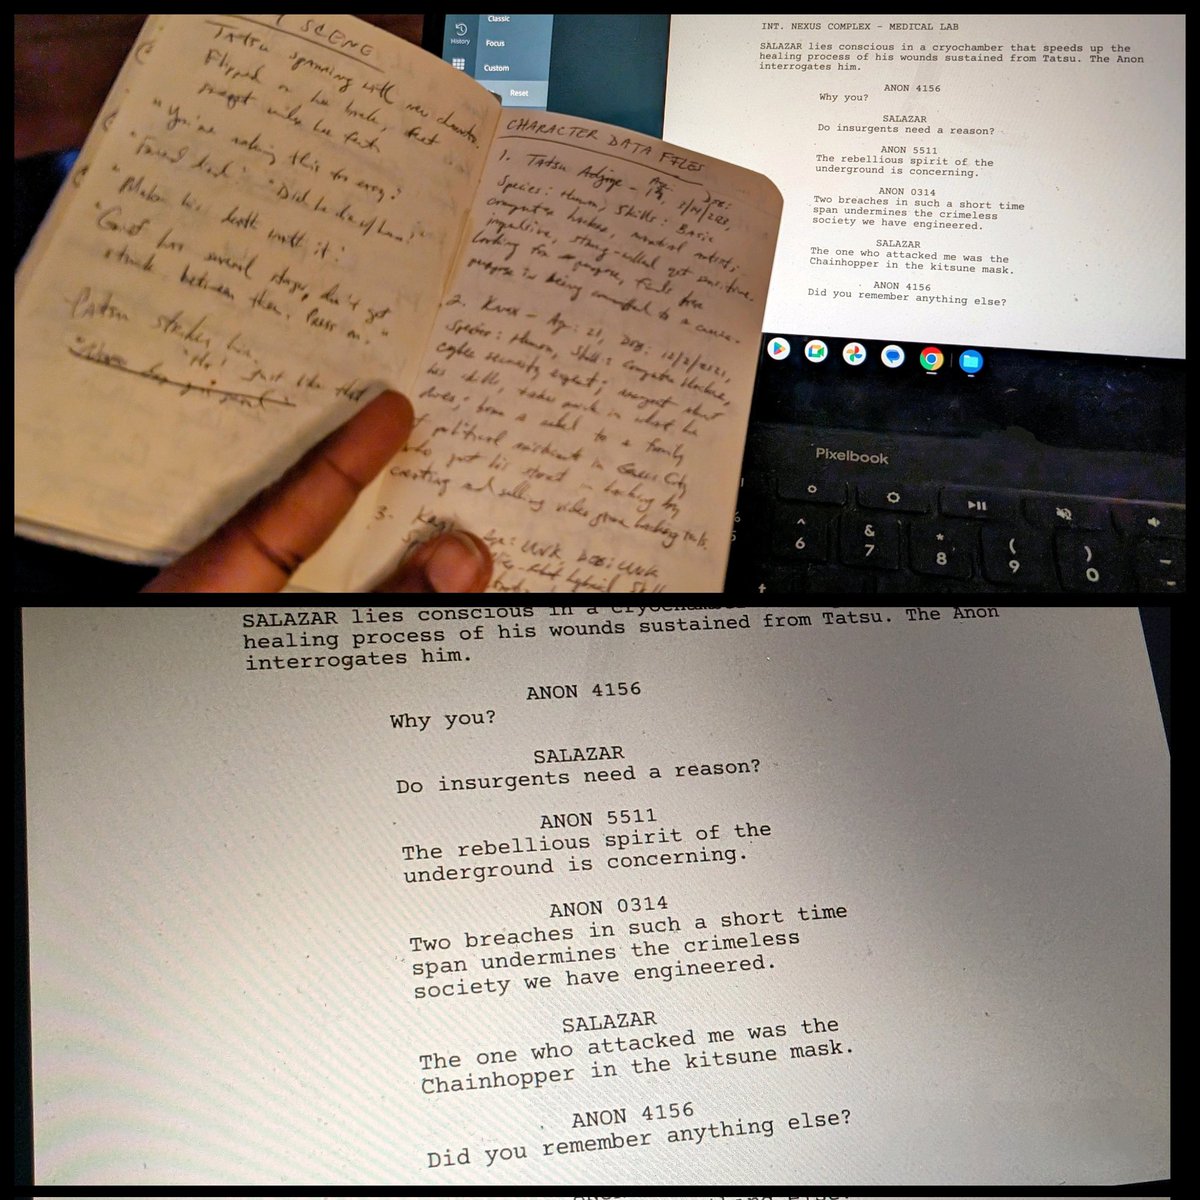 SCENE
Tatsu spanning with new character.
Flipped on his back, feet
swept under his feet
"You're making this too easy!"
"Found dead." "Did he die w/ honor?"
"Make his death worth it!"
"Grief has several stages, don't get
stuck between them. Press on."
Tatsu strikes him.
"No! Just like that
CHARACTER DATA FILES
1. Tatsu - Age: 19, DOB:
Species: Human, Skills: Basic
computer hacker, martial artist;
impulsive, strong-willed yet sensitive.
Looking for purpose, finds
purpose in being committed to a cause.
2. - Age: 21, DOB: 12/2/2121,
Species: Human, Skill: Computer Hacker,
cyber security expert; arrogant about
his skills, takes pride in what he
does; born a rebel to a family
of political militants in City
who got his start in hacking by
creating and selling video game hacking tools.
3. Age: UNK DOB: UNK
hybrid
History
Classic
Focus
Custom
Reset
INT. NEXUS COMPLEX - MEDICAL LAB
SALAZAR lies conscious in a cryochamber that speeds up the
healing process of his wounds sustained from Tatsu. The Anon
interrogates him.
ANON 4156
Why you?
SALAZAR
Do insurgents need a reason?
ANON 5511
The rebellious spirit of the
underground is concerning.
ANON 0314
Two breaches in such a short time
span undermines the crimeless
society we have engineered.
SALAZAR
The one who attacked me was the
Chainhopper in the kitsune mask.
ANON 4156
Did you remember anything else?
Pixelbook
^ & * ( )
6 7 8 9 0
SALAZAR lies conscious in a
healing process of his wounds sustained from Tatsu. The Anon
interrogates him.
ANON 4156
Why you?
SALAZAR
Do insurgents need a reason?
ANON 5511
The rebellious spirit of the
underground is concerning.
ANON 0314
Two breaches in such a short time
span undermines the crimeless
society we have engineered.
SALAZAR
The one who attacked me was the
Chainhopper in the kitsune mask.
ANON 4156
Did you remember anything else?